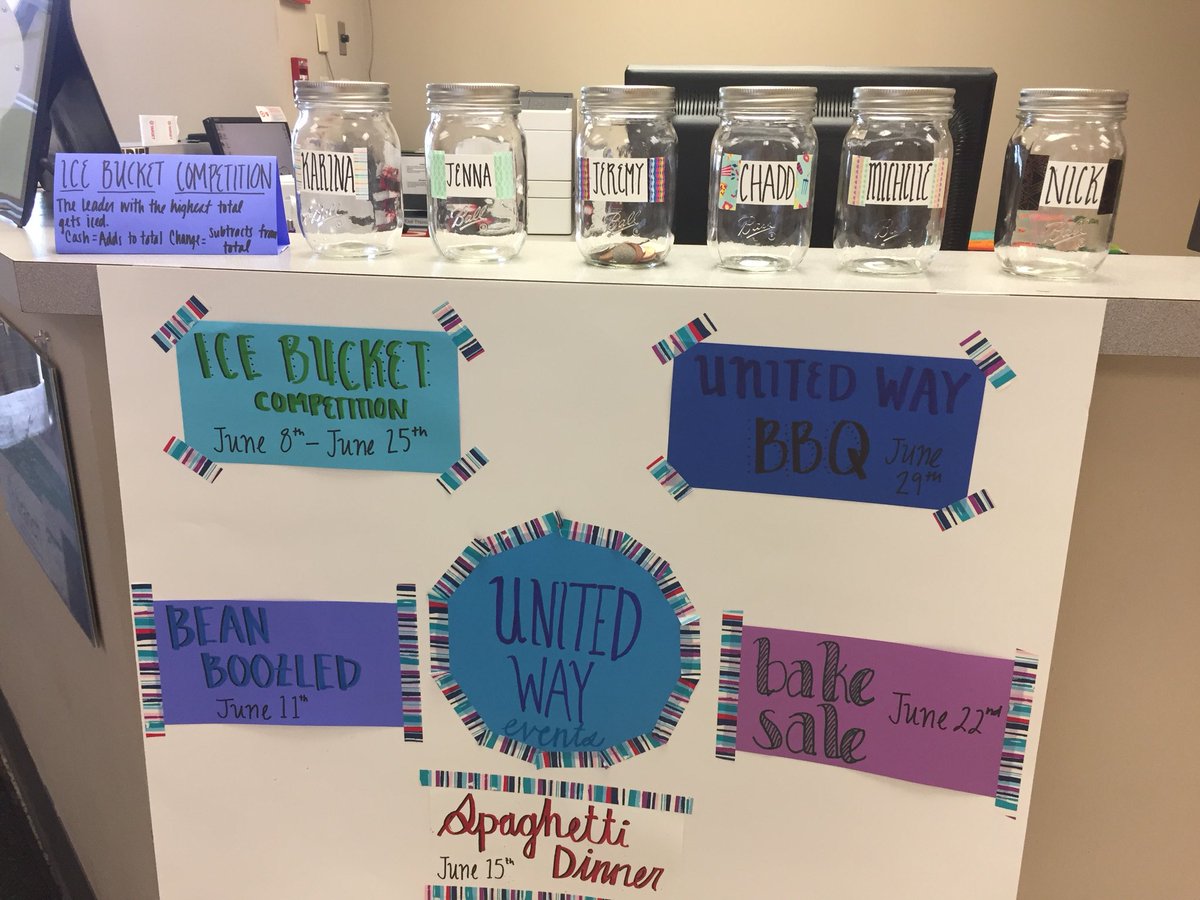 ICE BUCKET COMPETITION
The leader with the highest total
gets iced.
*Cash = Adds to total Change = Subtracts from
total
KARINA
JENNA
JEREMY
CHADD
MICHELLE
NICK
Ball
Ball
Ball
Ball
ICE BUCKET
COMPETITION
June 8th - June 25th
UNITED WAY
BBQ June
29th
BEAN
BOOZLED
June 11th
UNITED
WAY
events
bake
sale June 22nd
Spaghetti
June 15th Dinner